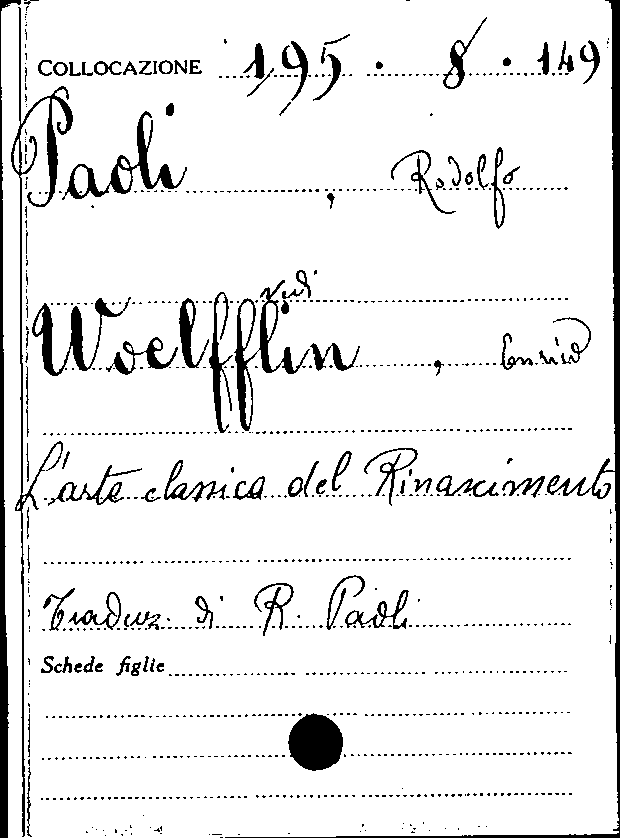 COLLOCAZIONE 195 . 8 . 149
Paoli , Rodolfo
vedi
Woelfflin , Enrico
L'arte classica del Rinascimento
Traduz. di R. Paoli
Schede figlie